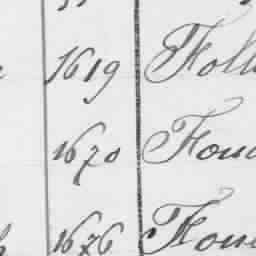 1619 Foll
1670 Fou
1676 Fou